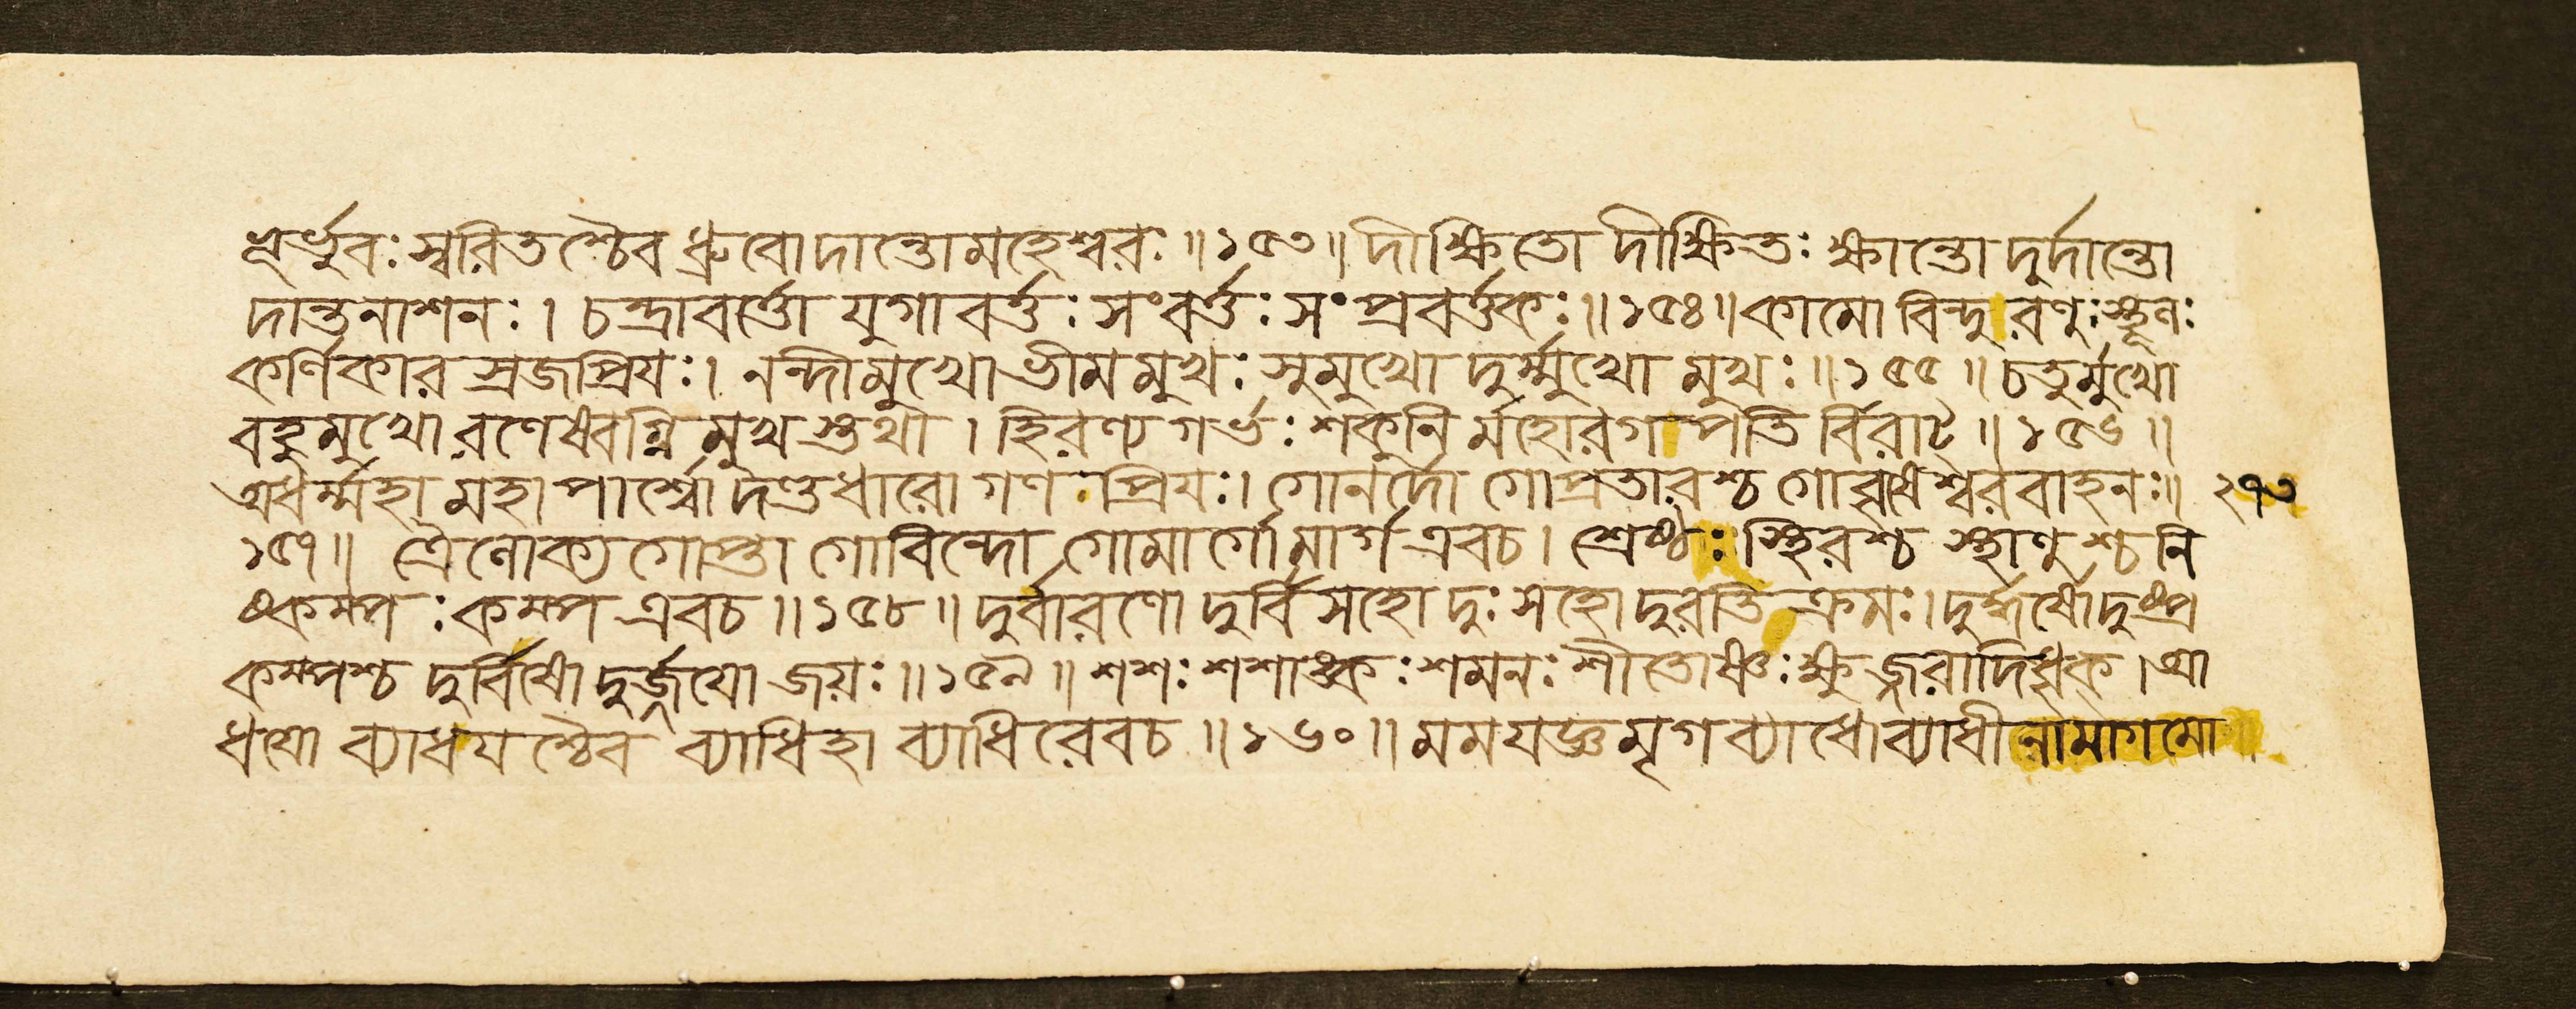 ভূর্ভুবঃ স্বরিতশ্চৈব ধ্রুবোদান্তোমহেশ্বরঃ ॥ ১৫৩ ॥ দীক্ষিতো দীক্ষিতঃ ক্ষান্তো দুর্দান্তো
দান্তনাশনঃ । চন্দ্রাবর্ত্তো যুগাবর্ত্তঃ সংবর্ত্তঃ সংপ্রবর্ত্তকঃ ॥ ১৫৪ ॥ কামো বিন্দুরণুঃস্থূলঃ
কর্ণিকার স্রজপ্রিয়ঃ । নন্দীমুখোভীমমুখঃ সুমুখো দুর্ম্মুখো মুখঃ ॥ ১৫৫ ॥ চতুর্মুখো
বহুমুখোরণেষ্বগ্নিমুখস্তথা । হিরণ্যগর্ভঃ শকুনির্মহোরগপতির্বিরাট ॥ ১৫৬ ॥
অধর্ম্মহা মহাপার্শ্বো দণ্ডধারো গণপ্রিয়ঃ । গোনর্দো গোপ্রতারশ্চ গোবৃষেশ্বরবাহনঃ ॥ ২৭৩
১৫৭ ॥ ত্রৈলোক্যগোপ্তা গোবিন্দো গোমার্গোমার্গ এবচ । শ্রেষ্ঠঃ স্থিরশ্চ স্থাণুশ্চনি
ষ্কম্পঃ কম্প এবচ ॥ ১৫৮ ॥ দুর্বারণো দুর্বিসহো দুঃসহোদুরতিক্রমঃ । দুর্দ্ধর্ষোদুষ্প্র
কম্পশ্চ দুর্বিষোদুর্জ্জয়ো জয়ঃ ॥ ১৫৯ ॥ শশঃ শশাঙ্কঃ শমনঃ শীতোষ্ণঃ ক্ষুজ্জরাধিধৃক । আ
ধয়ো ব্যাধয়শ্চৈব ব্যাধিহা ব্যাধিরেবচ ॥ ১৬০ ॥ মমযজ্ঞমৃগব্যাধোব্যাধীনামাগমো